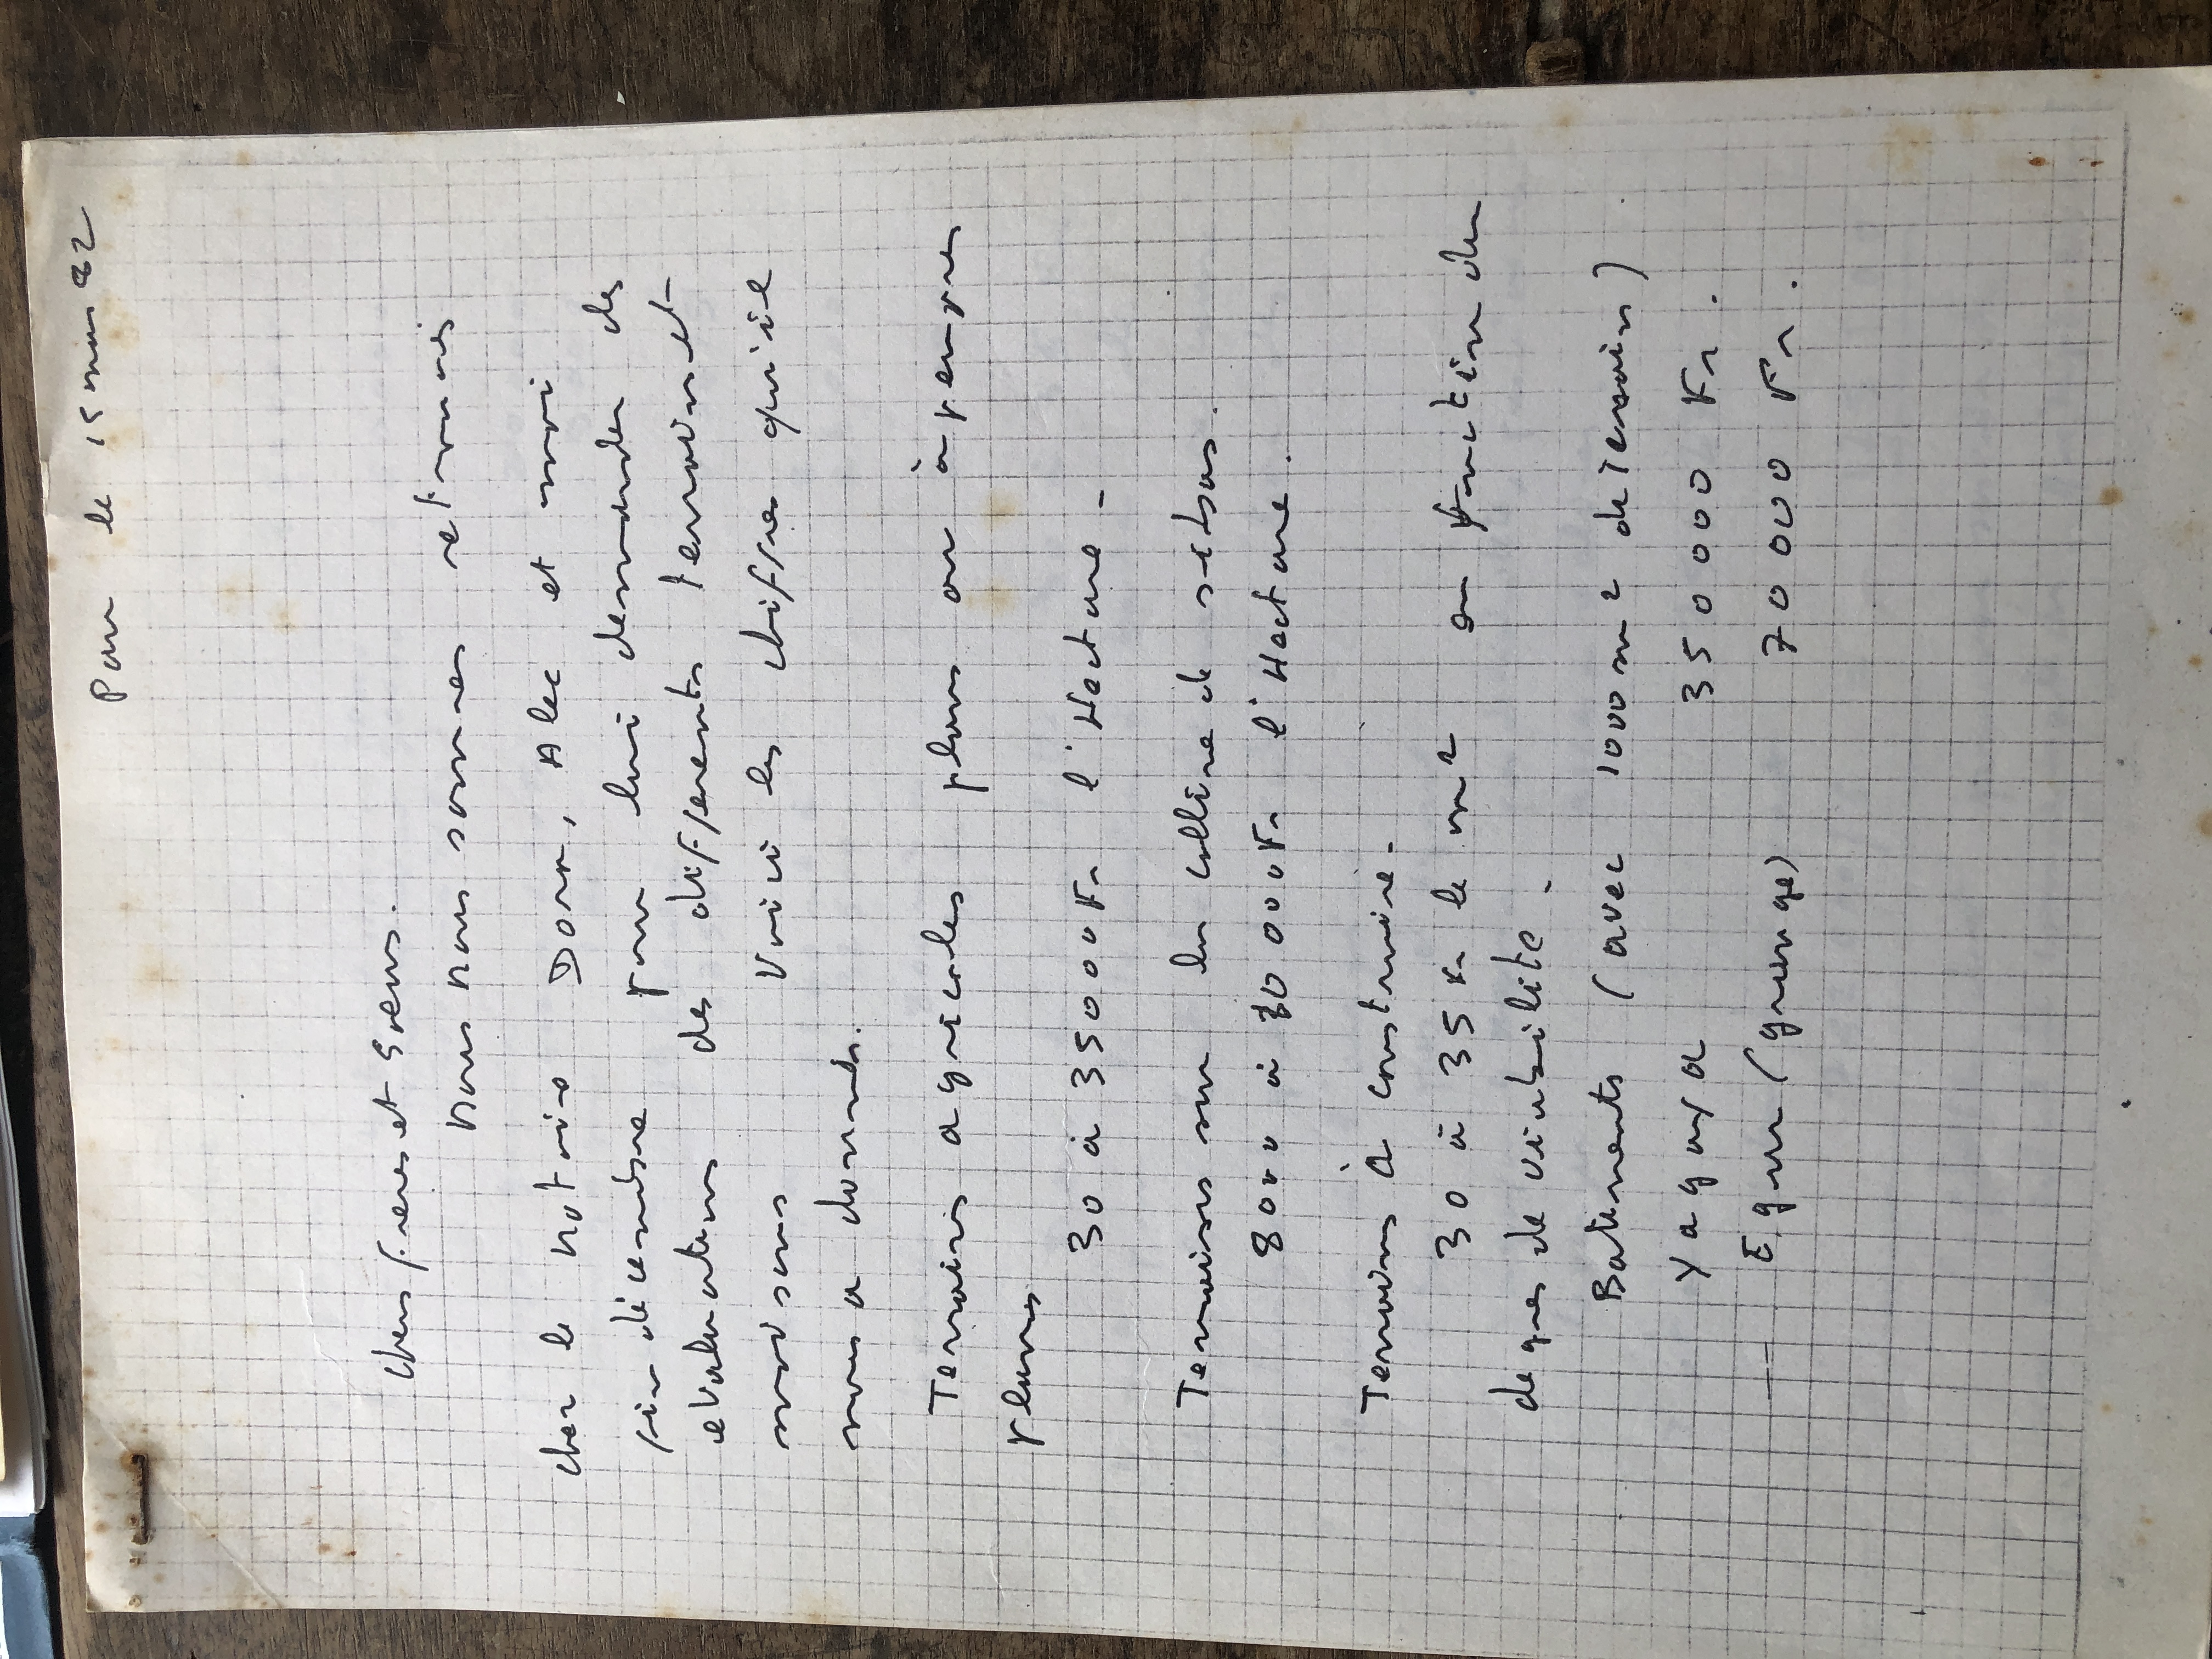 Pau le 15 mars 82
Chers freres et soeurs.
Nous nous sommes retrouvés
chez le notaire Dom, Alec et moi
fin décembre pour lui demander des
evaluations des differents terrains et
maisons Voici les chiffres qu'il
nous a donnés.
Terrains agricoles plans ou à peu pres
plans
30 à 35000 Fr l'Hectare -
Terrains sur la colline de
8000 à 10 000 Fr l'Hectare.
Terrains à construire -
30 à 35 Fr le m2 en fonction du
degres de viabilite.
Batiments (avec 1000 m2 de Terrain)
35 0 000 Fr.
(grange) 70 000 Fr.